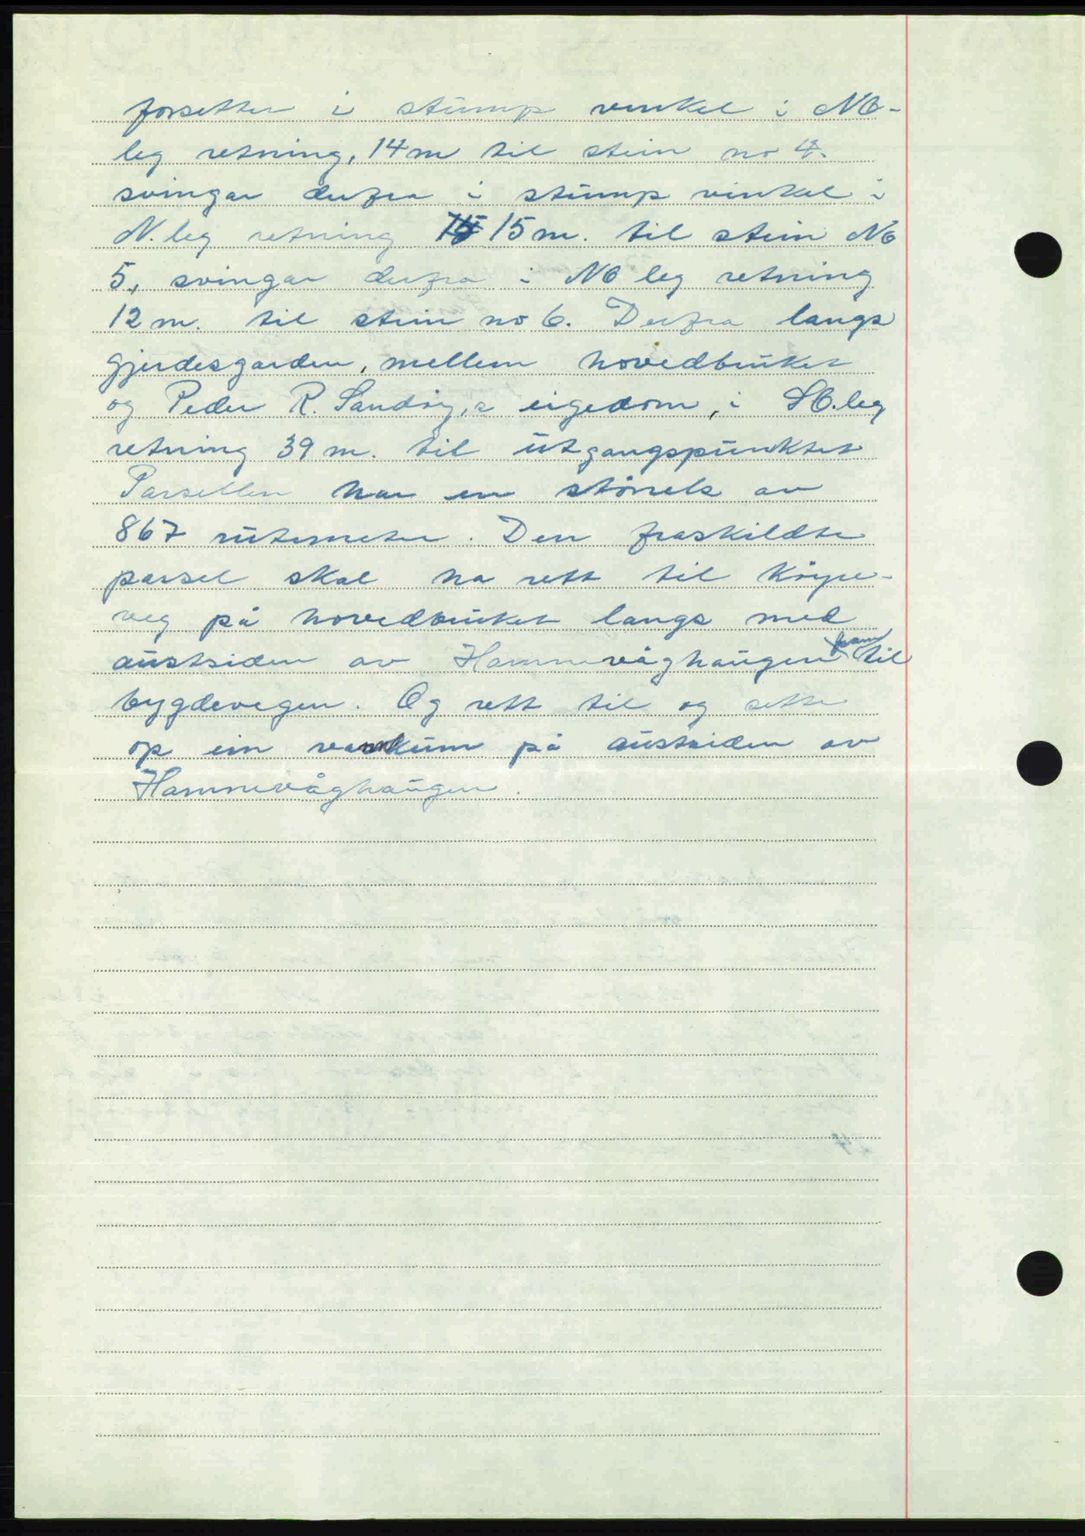 forsetter i stump vinkel i NO-
leg retning, 14 m til stein no 4.
svingar derfra i stump vinkel i
N. leg retning 15 15 m. til stein No
5., svingar derfra i NO leg retning
12 m. til stein no 6. Derfra langs
gjerdesgarden, mellem hovedbruket
og Peder R. Sandøy,s eigedom, i SO. leg
retning 39 m. til utgangspunktet
Parsellen har en störels av
867 rutemeter. Den fraskildte
parsel skal ha rett til köyre-
veg på hovedbruket langs med
austsiden av Hamnevåghaugen fram til
bygdevegen. Og rett til og sette
op ein vasskum på austsiden av
Hamnevåghaugen.